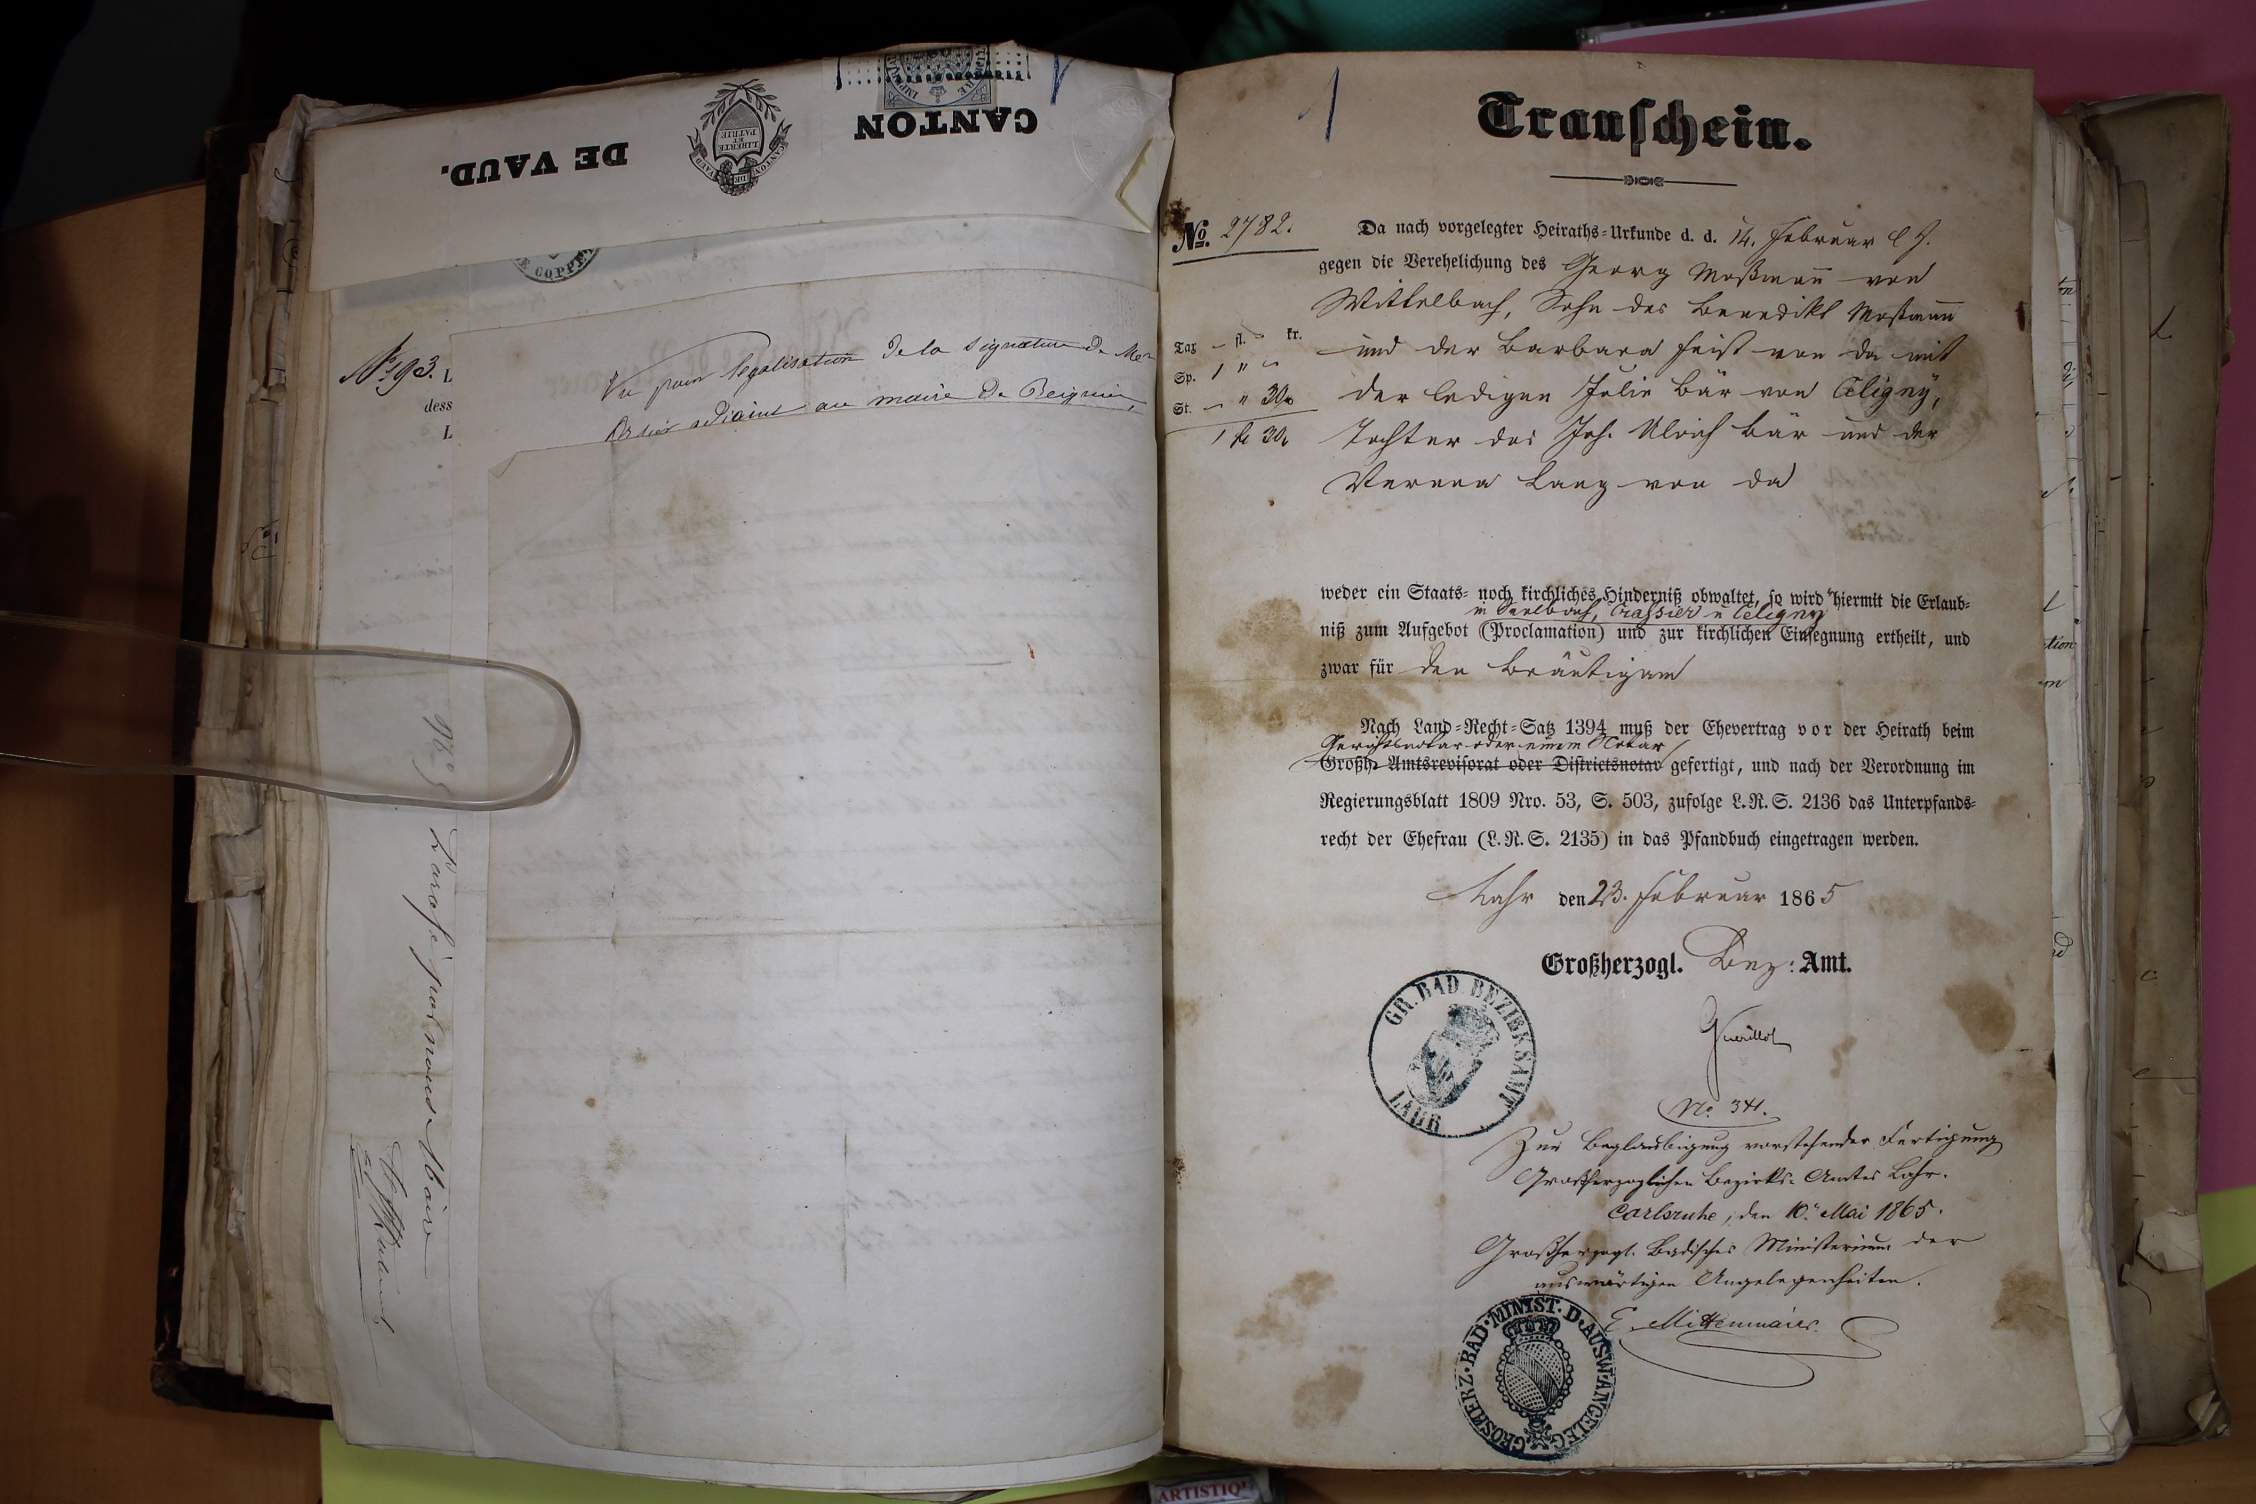 CANTON
DE VAUD.
LIBERTÉ
ET
PATRIE
CANTON DE VAUD
DE COPPE
No 93.
L
dess
L
Vu pour légalisation de la signature de Mr
adjoint au maire de Reignier,
No
Paraphé par nous Maire
Trauschein.
No. 2782.
Da nach vorgelegter Heiraths-Urkunde d. d. 14. Februar l J.
gegen die Verehelichung des Georg Moßmann von
Wittelbach, Sohn des Benedikt Moßmann
und der Barbara Feist von da mit
der ledigen Julie Bär von Céligny,
Tochter des Joh. Ulrich Bär und der
Verena Lang von da
Tax — fl. — kr.
Sp. 1 " —
St. — " 30
1 fl 30
weder ein Staats- noch kirchliches Hinderniß obwaltet, so wird hiermit die Erlaub-
in Seelbach, Crassier u Céligny
niß zum Aufgebot (Proclamation) und zur kirchlichen Einsegnung ertheilt, und
zwar für den Bräutigam
Nach Land-Recht-Satz 1394 muß der Ehevertrag vor der Heirath beim
Gerichtsnotar oder einem Notar
Großh. Amtsrevisorat oder Districtsnotar gefertigt, und nach der Verordnung im
Regierungsblatt 1809 Nro. 53, S. 503, zufolge L.R.S. 2136 das Unterpfands-
recht der Ehefrau (L.R.S. 2135) in das Pfandbuch eingetragen werden.
Lahr den 23. Februar 1865
Großherzogl. Bez: Amt.
GR. BAD BEZIRKSAMT
LAHR
No. 341.
Zur Beglaubigung vorstehender Fertigung
Großherzoglichen Bezirks-Amtes Lahr.
Carlsruhe, den 10. Mai 1865.
Großherzogl. Badisches Ministerium der
auswärtigen Angelegenheiten.
E. Mittermaier.
GROSHERZ. BAD. MINIST. D. AUSW. ANGELEG.
ARTISTIQ